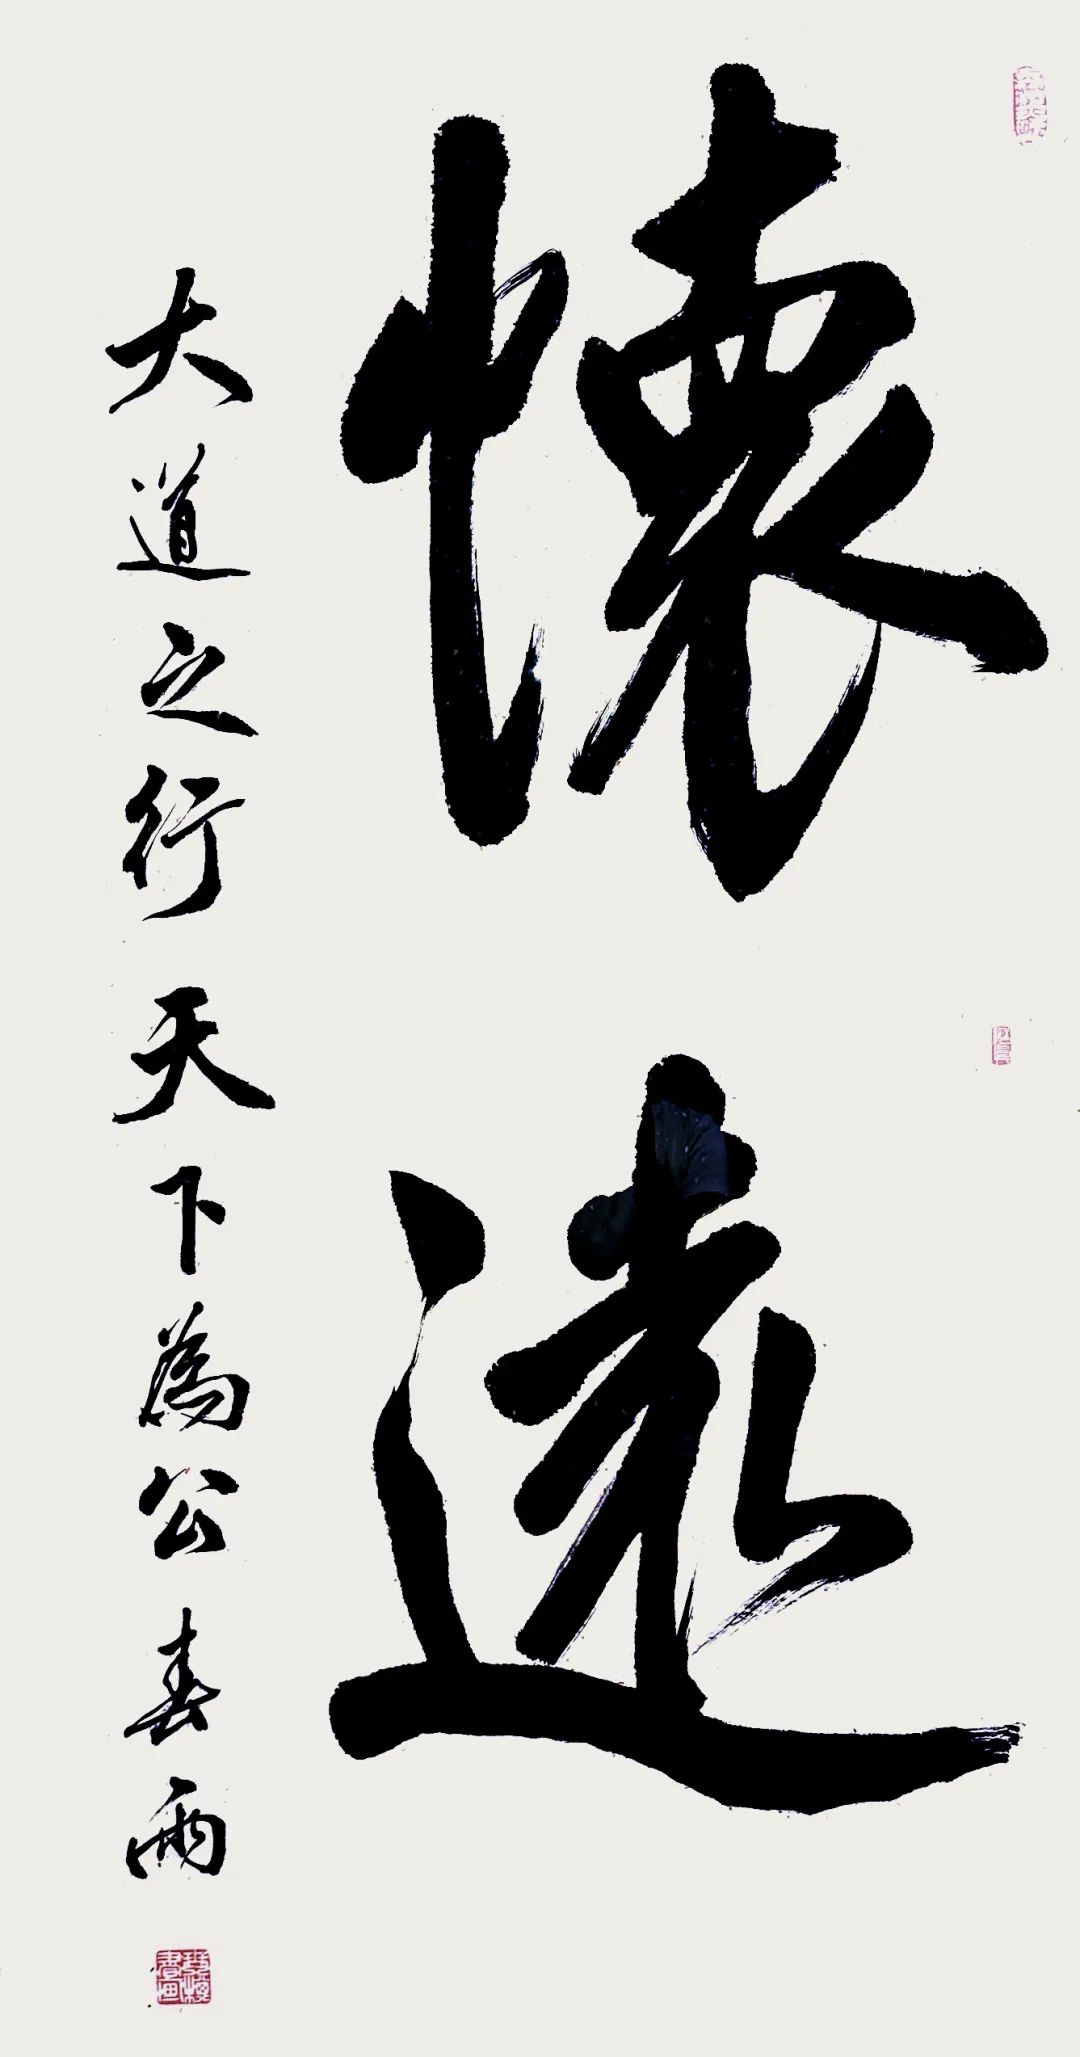 懷遠
大道之行天下為公春雨